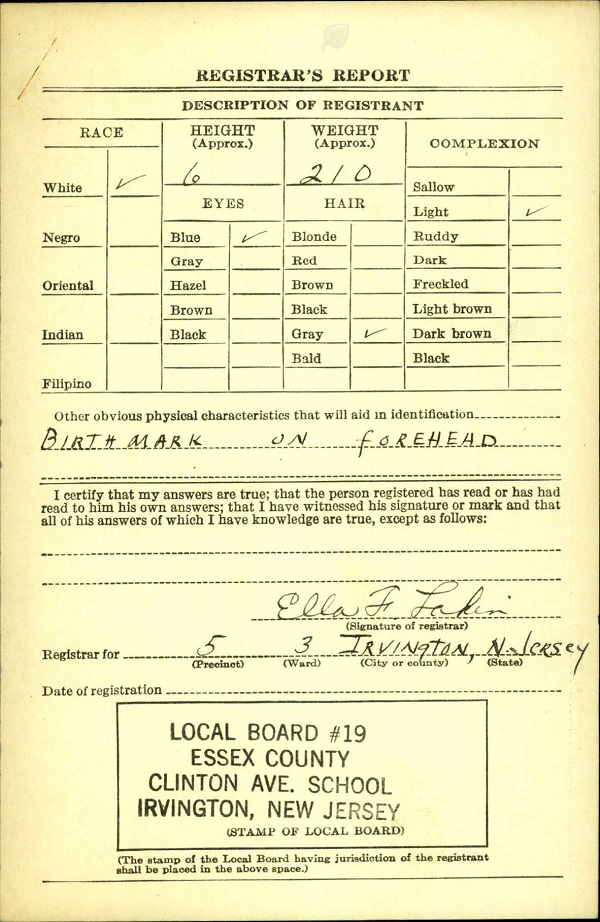 REGISTRAR'S REPORT
DESCRIPTION OF REGISTRANT
RACE
HEIGHT (Approx.)
WEIGHT (Approx.)
COMPLEXION
White ✓
6
210
Sallow
EYES
HAIR
Light ✓
Negro
Blue ✓
Blonde
Ruddy
Gray
Red
Dark
Oriental
Hazel
Brown
Freckled
Brown
Black
Light brown
Indian
Black
Gray ✓
Dark brown
Bald
Black
Filipino
Other obvious physical characteristics that will aid in identification
BIRTH MARK ON FOREHEAD
I certify that my answers are true; that the person registered has read or has had
read to him his own answers; that I have witnessed his signature or mark and that
all of his answers of which I have knowledge are true, except as follows:
Ella F.
(Signature of registrar)
Registrar for 5 3 IRVINGTON, N. JERSEY
(Precinct) (Ward) (City or county) (State)
Date of registration
LOCAL BOARD #19
ESSEX COUNTY
CLINTON AVE. SCHOOL
IRVINGTON, NEW JERSEY
(STAMP OF LOCAL BOARD)
(The stamp of the Local Board having jurisdiction of the registrant
shall be placed in the above space.)